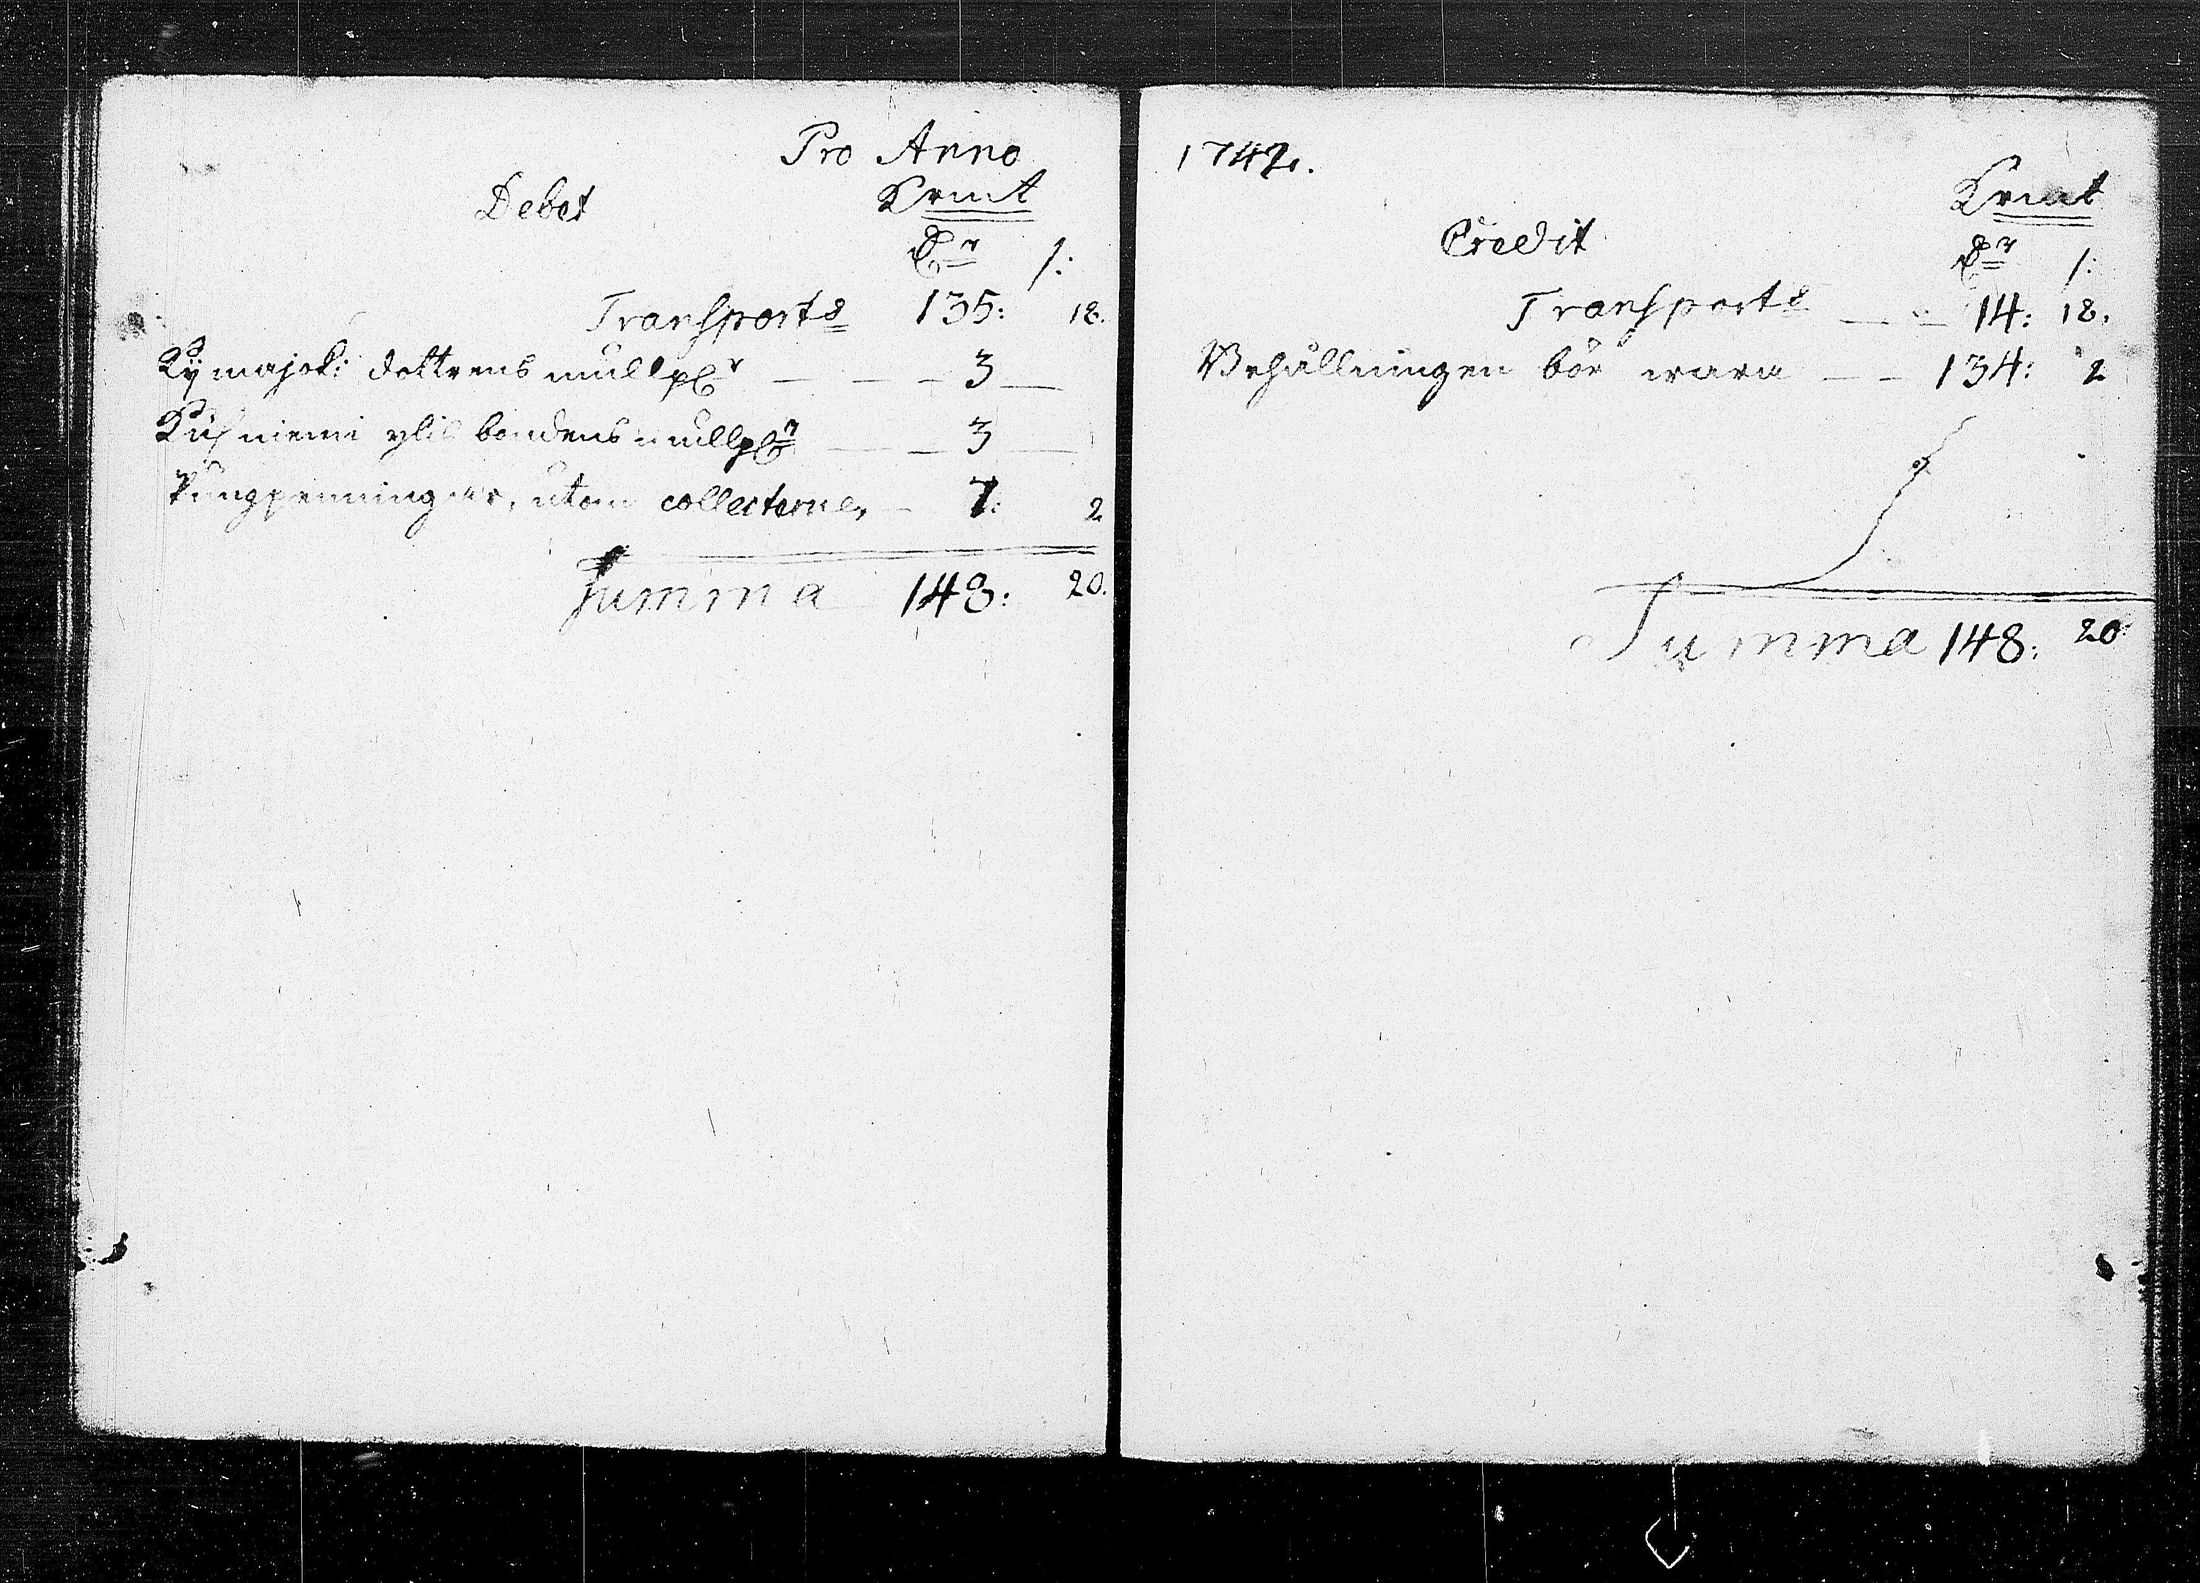 Pro Anno
Debet Krmt
Dr s:
Transport 135: 18.
Kymajok: dottrens mullpr 3
niemi bondens mullpr 3
Pungpenningar, utom collecterne, 7: 2
Summa 148: 20.
1742.
Krmt
Credit
Dr s:
Transport 14: 18.
Behållningen bör wara 134: 2
Summa 148: 20